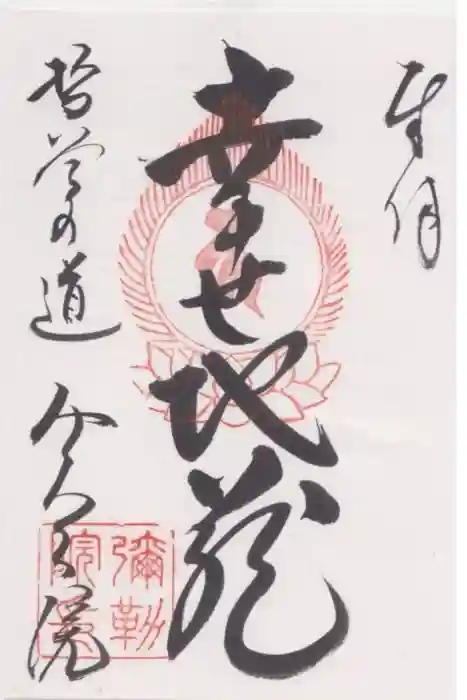 奉拝
幸せ地蔵
哲学の道 弥勒院
彌勒院